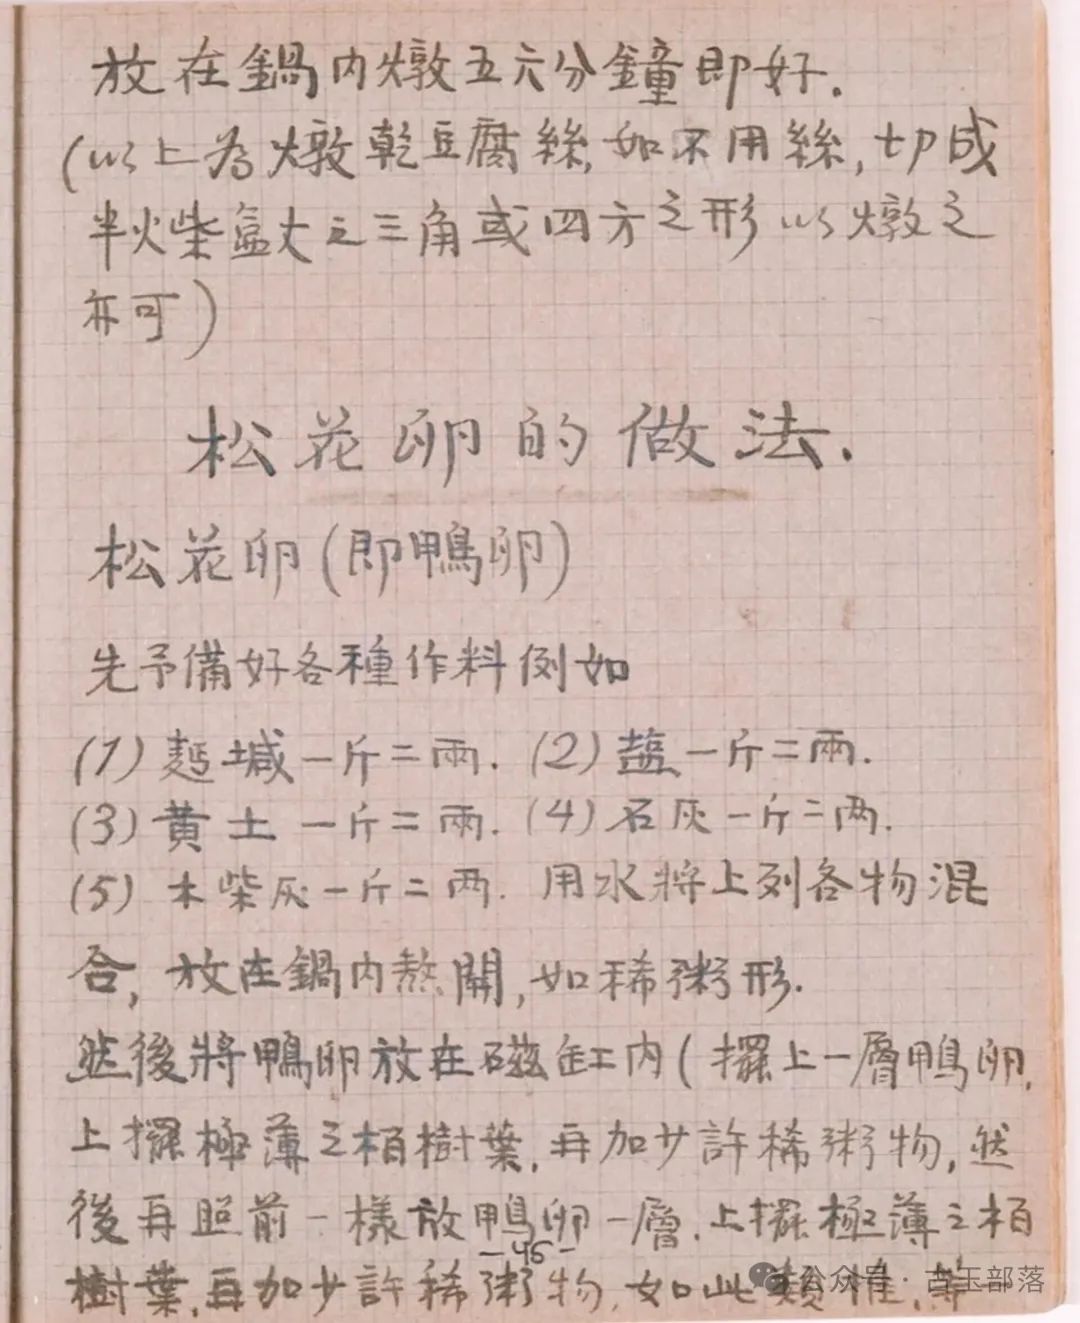 放在鍋内燉五六分鐘即好.
(以上為燉乾豆腐絲,如不用絲,切成
半火柴盒大之三角或四方之形以燉之
亦可)
松花卵的做法.
松花卵(即鴨卵)
先予備好各種作料例如
(1) 麵堿一斤二兩. (2) 盐一斤二兩.
(3) 黄土一斤二兩. (4) 石灰一斤二两.
(5) 木柴灰一斤二两. 用水將上列各物混
合, 放在鍋内熬開,如稀粥形.
然後將鴨卵放在磁缸内(擺上一層鴨卵,
上擺極薄之柏樹葉,再加少許稀粥物,然
後再照前一樣放鴨卵一層.上擺極薄之柏
-45-
樹葉,再加少許稀粥物,如此類推,等
公众号·古玉部落